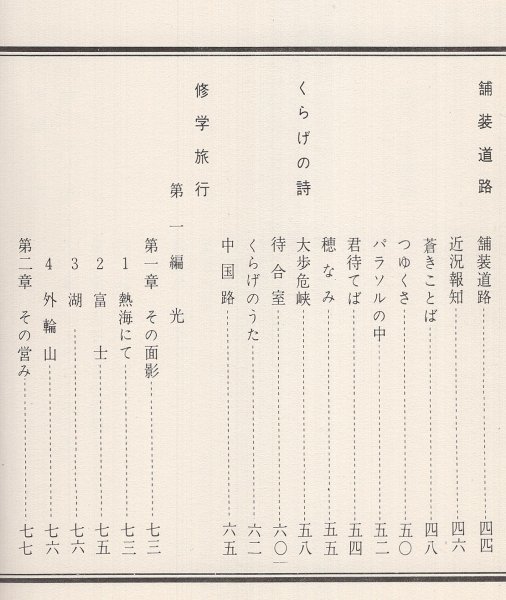 舗装道路
舗装道路 四四
近況報知 四六
蒼きことば 四八
つゆくさ 五〇
パラソルの中 五二
君待てば 五四
穂なみ 五五
くらげの詩
大歩危峡 五八
待合室 六〇
くらげのうた 六二
中国路 六五
修学旅行
第一編 光
第一章 その面影 七三
1 熱海にて 七三
2 富士 七五
3 湖 七六
4 外輪山 七六
第二章 その営み 七七